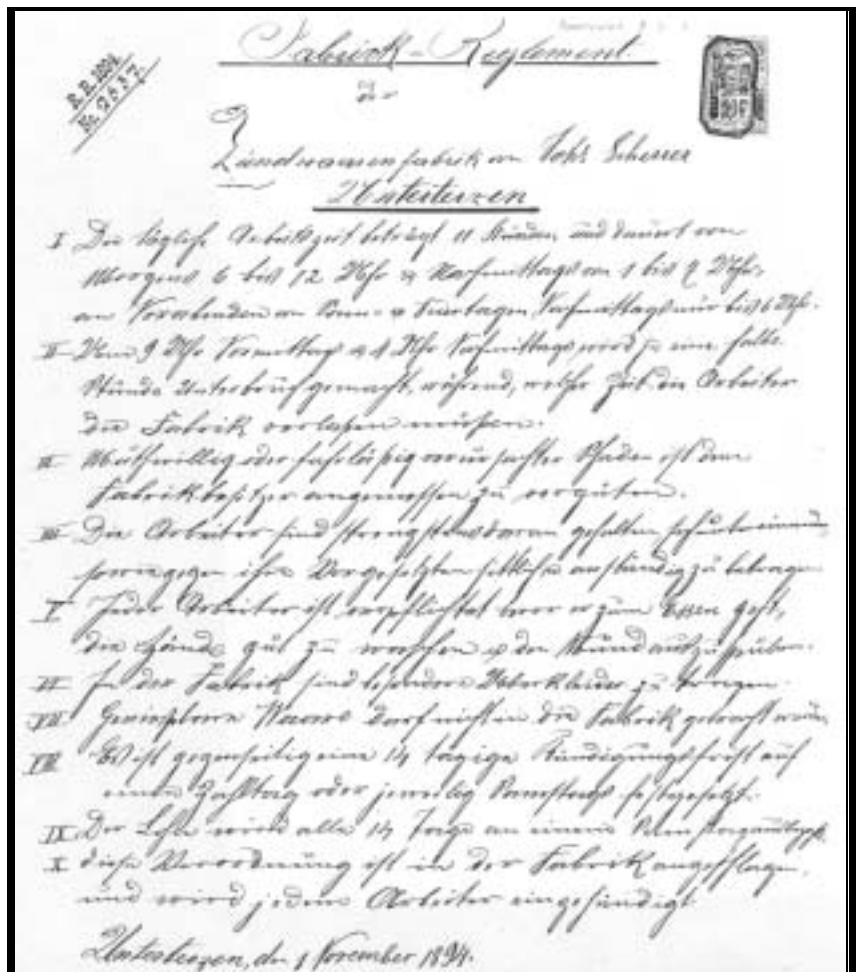 R. B. 1894.
Nr. 2637.
Fabrick-Reglement.
der
Zündwaarenfabrik von Joh. Scherrer
Unterterzen
I Die tägliche Arbeitszeit beträgt 11 Stunden und dauert von
Morgens 6 bis 12 Uhr & Nachmittags von 1 bis 7 Uhr,
an Vorabenden von Sonn- & Feiertagen Nachmittags nur bis 6 Uhr.
II Um 9 Uhr Vormittag & 4 Uhr Nachmittags wird je eine halbe
Stunde Unterbruch gemacht, während welcher Zeit die Arbeiter
die Fabrik verlassen müssen.
III Muthwillig oder fahrläßig verursachter Schaden ist dem
Fabrikbesitzer angemessen zu vergüten.
Die Arbeiter sind strengstens daran gehalten sich
gegen ihre Vorgesetzten sittlich & anständig zu betragen
V Jeder Arbeiter ist verpflichtet bevor er zum Essen geht,
die Hände gut zu waschen & den Mund auszuspülen.
VI In der Fabrik sind besondere Ueberkleider zu tragen.
VII Geniessbare Waare darf nicht in die Fabrik gebracht werden
VIII Es ist gegenseitig eine 14 tägige Kündigungsfrist auf
einen Zahltag oder jeweilig Samstags festgesetzt.
IX Der Lohn wird alle 14 Tage an einem
X Diese Verordnung ist in der Fabrik angeschlagen,
und wird jedem Arbeiter eingehändigt
Unterterzen, den 1 November 1894.